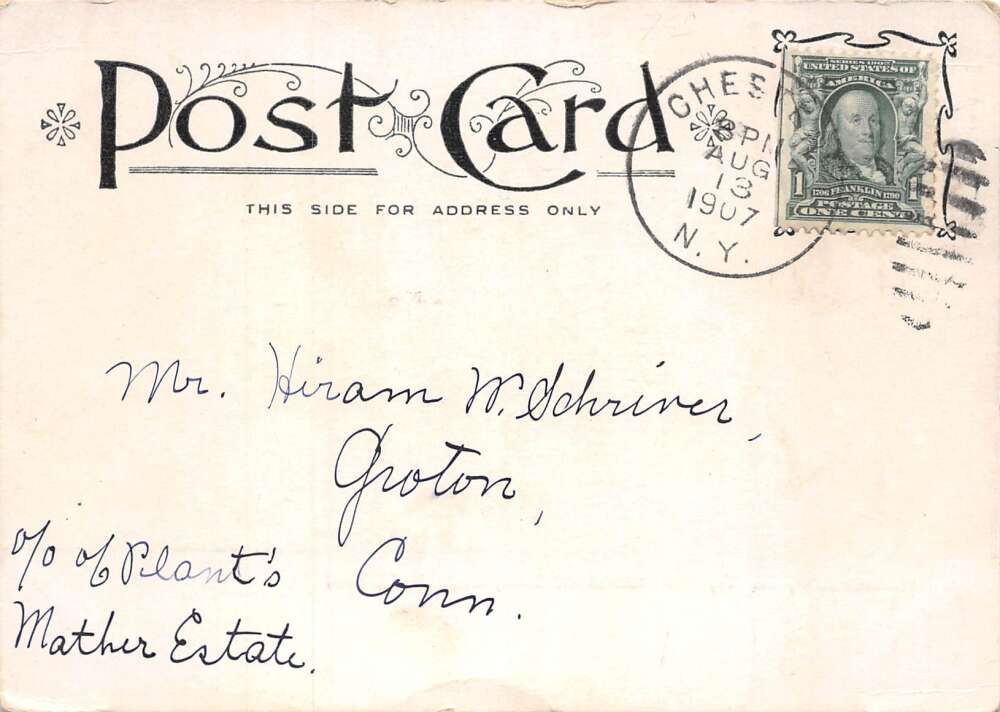 Post Card
THIS SIDE FOR ADDRESS ONLY
CHES
8 PM
AUG
13
1907
N.Y.
SERIES 1902
UNITED STATES OF
AMERICA
1 1706 FRANKLIN 1790 1
POSTAGE
ONE CENT
Mr. Hiram W. Schriver,
Groton,
Conn.
c/o of Plant's
Mather Estate.